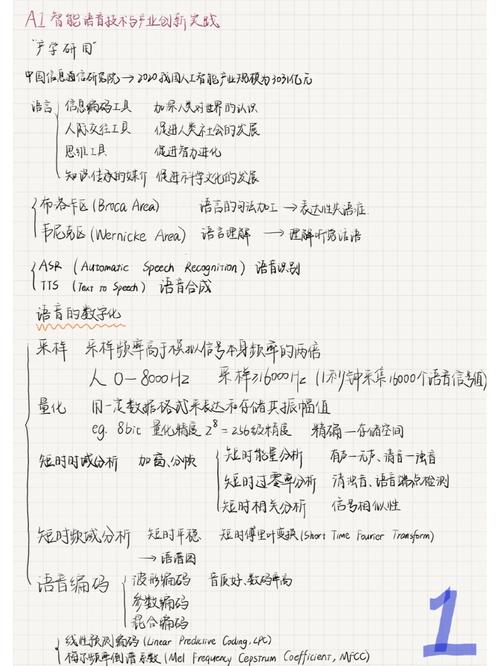 AI智能语音技术与产业创新实战
"产学研用"
中国信息通信研究院→2020我国人工智能产业规模为3031亿元
语言 信息编码工具 加深人类对世界的认识
人际交往工具 促进人类社会的发展
思维工具 促进智力进化
知识传承的媒介 促进科学文化的发展
布洛卡区(Broca Area) 语言的句法加工→表达性失语症
韦尼克区(Wernicke Area) 语言理解→理解听觉话语
ASR (Automatic Speech Recognition) 语音识别
TTS (Text to Speech) 语音合成
语音的数字化
采样 采样频率高于模拟信号本身频率的两倍
人 0-8000Hz 采样≥16000Hz (1秒钟采集16000个语音信号值)
量化 用一定数据格式来表达和存储其振幅值
eg. 8bit 量化精度 2⁸=256级精度 精确—存储空间
短时时域分析 加窗、分帧 短时能量分析 有声—无声、清音—浊音
短时过零率分析 清浊音、语音端点检测
短时相关分析 信号相似性
短时频域分析 短时平稳 短时傅里叶变换(Short Time Fourier Transform)
→语谱图
语音编码 波形编码 音质好、数码率高
参数编码
混合编码
线性预测编码(Linear Predictive Coding, LPC)
梅尔频率倒谱系数(Mel Frequency Cepstrum Coefficient, MFCC)
1